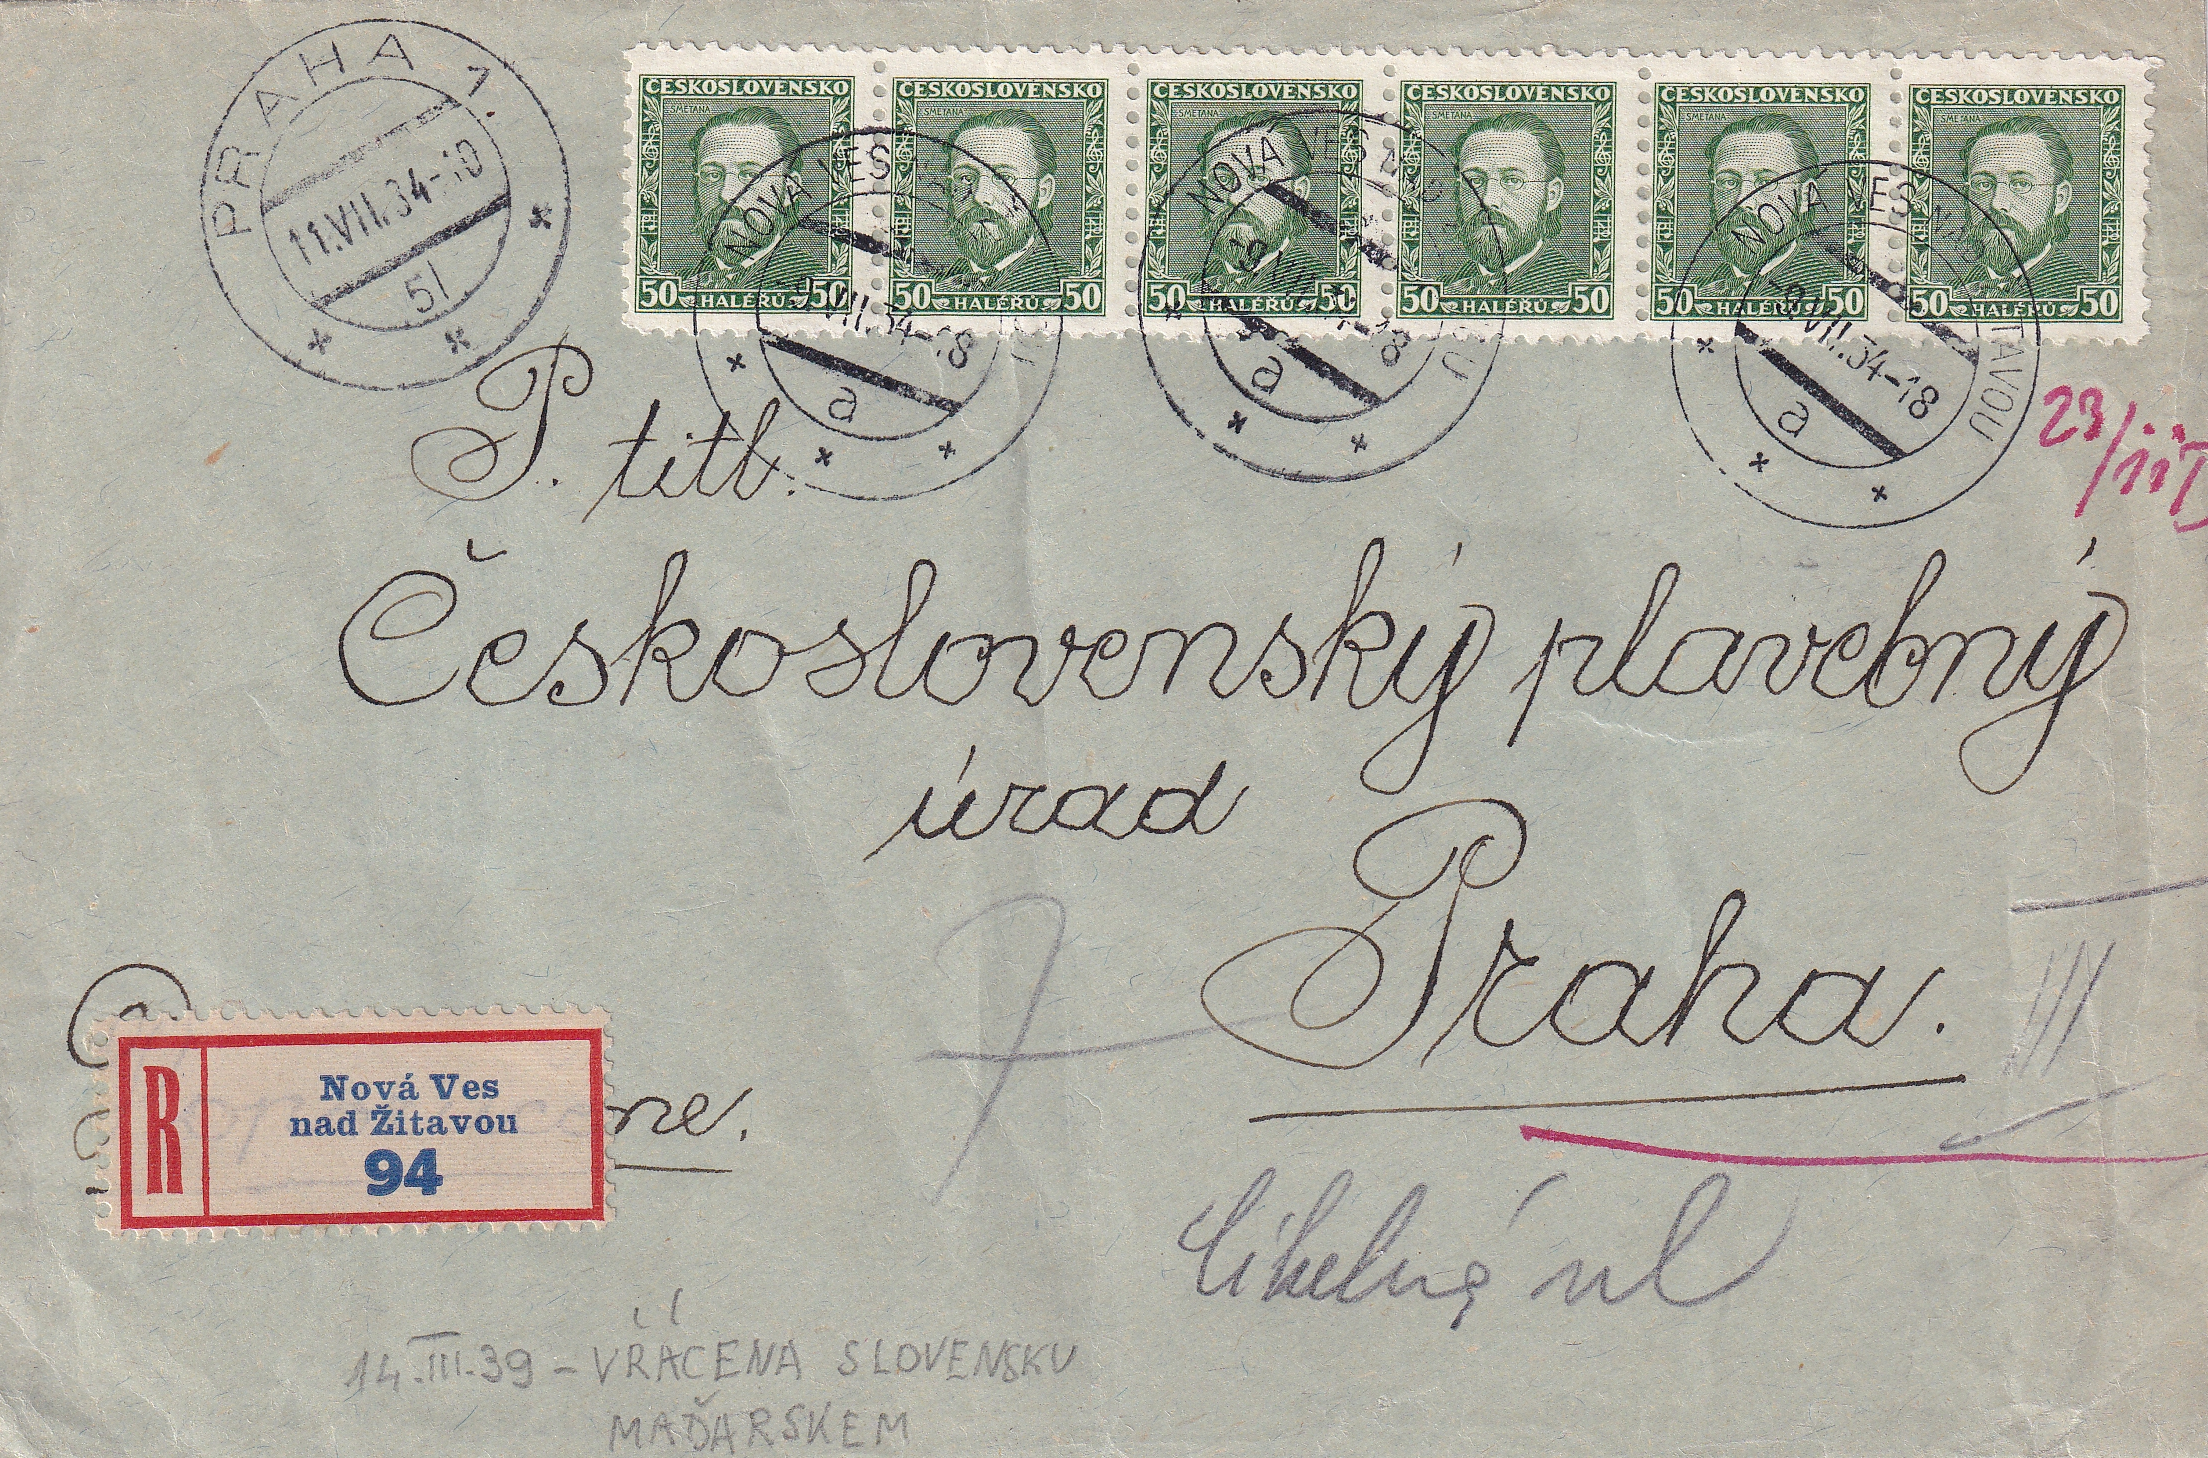 PRAHA 1.
11.VII.34-10
51
ČESKOSLOVENSKO
SMETANA
50 HALÉŘŮ 50
ČESKOSLOVENSKO
SMETANA
50 HALÉŘŮ 50
ČESKOSLOVENSKO
SMETANA
50 HALÉŘŮ 50
ČESKOSLOVENSKO
SMETANA
50 HALÉŘŮ 50
ČESKOSLOVENSKO
SMETANA
50 HALÉŘŮ 50
ČESKOSLOVENSKO
SMETANA
50 HALÉŘŮ 50
NOVÁ VES
VII.34-18
a
NOVÁ VES
a
NOVÁ VES NAD ŽITAVOU
VII.34-18
a
23/III
P. titl.
Československý plavebný
úrad
Praha.
III
R
Nová Ves
nad Žitavou
94
7
ul
14.III.39 - VRÁCENA SLOVENSKU
MAĎARSKEM